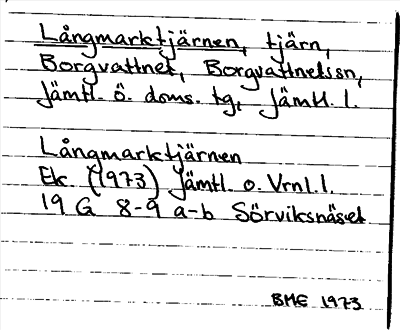 Långmarktjärnen, tjärn,
Borgvattnet, Borgvattnetssn,
Jämtl. ö. doms. tg, Jämtl. l.
Långmarktjärnen
Ek. (1973) Jämtl. o. Vrnl. l.
19 G 8-9 a-b Sörviksnäset
BME 1973